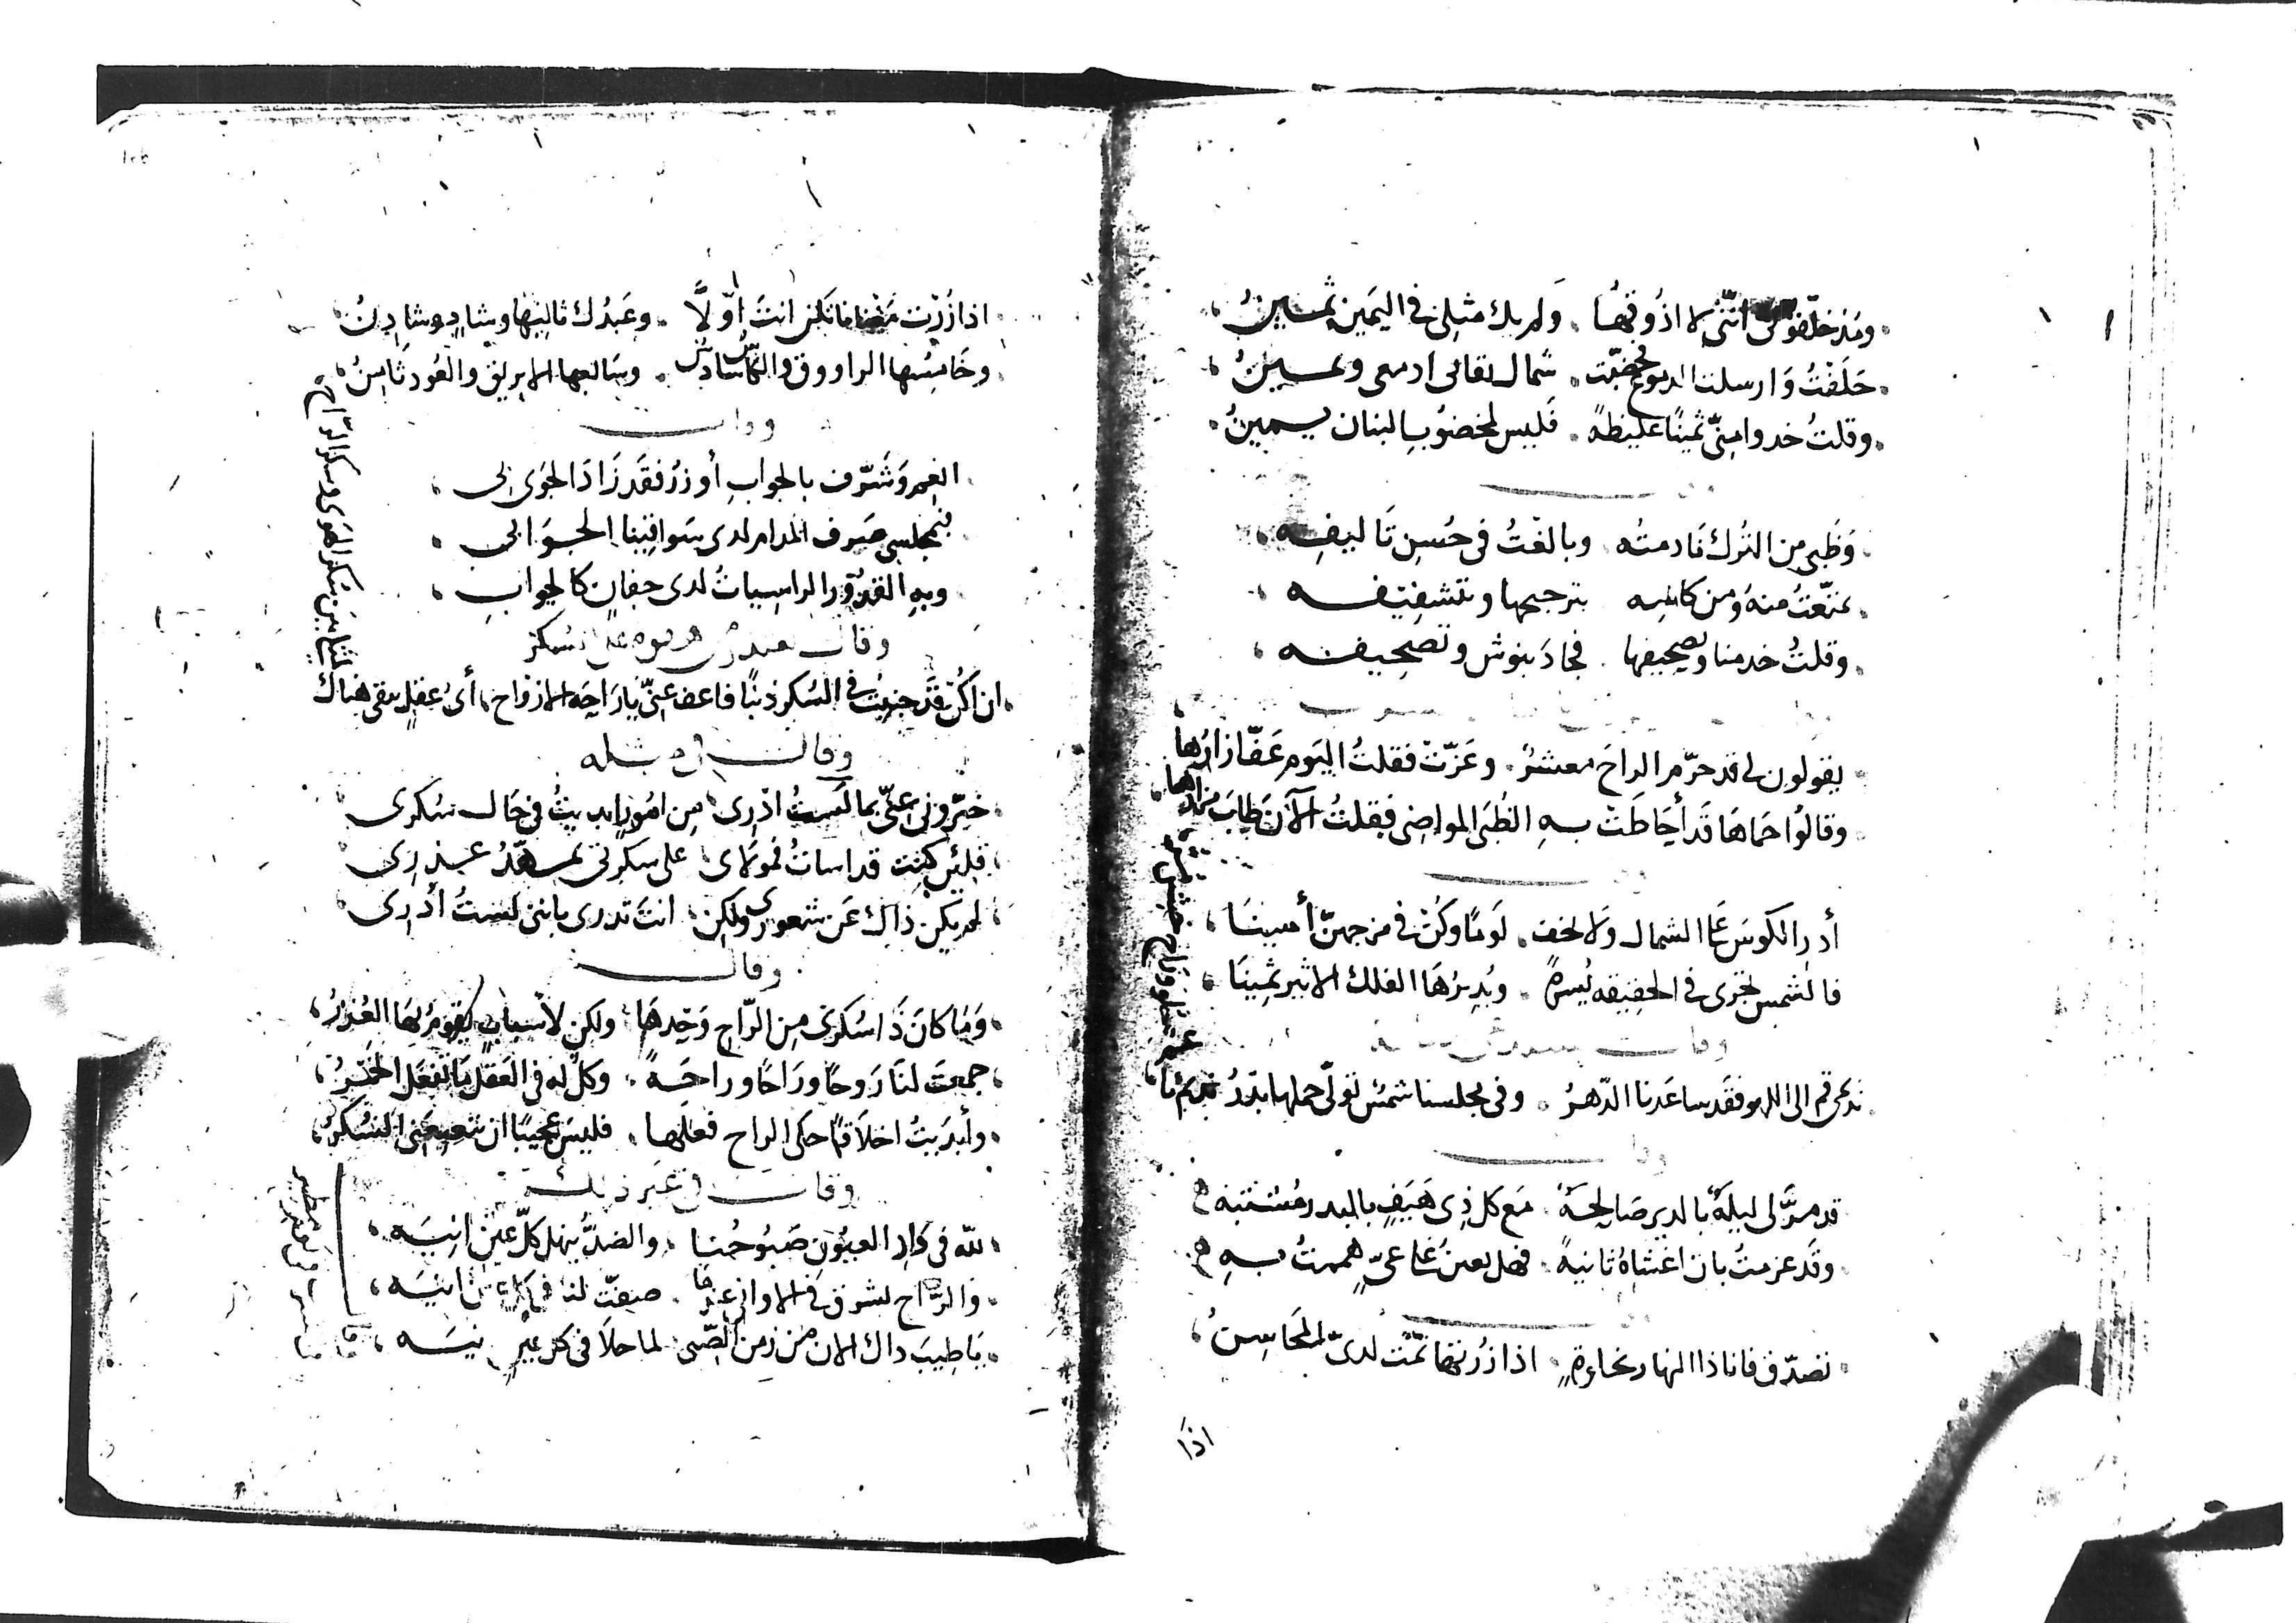 ومذ حلفوني انني لا اذوقها . ولم يك مثلي في اليمين يمين
حلفت وارسلت الدموع فخضبت . شمال تقانى ادمعي ويمين
وقلت خذوا مني يمينًا غليظةً . فليس لمخضوب البنان يمين
وظبي من الترك نادمته وبالغت في حسن تاليفه
تمتّعت منه ومن كاسه بترجيحها وبتشفيفه
وقلت خذ منا وتصحيفها . فجاد بنوش وتصحيفه
يقولون لي قد حرّم الراح معشر . وعزّت فقلت اليوم عفّا زارها
وقالوا حماها قد أحاطت به الظبى المواضي فقلت الآن طاب مزارها
أدر الكوس على الشمال ولا تخف . لومًا وكن في مزجهن أمينا
فالشمس تجري في الحقيقة يسرةً . ويديرها الفلك الاثير يمينا
ندعى قم الى اللهو فقد ساعدنا الدهر . وفي مجلسنا شمس تولى حملها بدر نديم ما
قد مرّ لي ليلةٌ بالدير صالحةٌ . مع كل ذي هيف بالبدر مشتبه
وقد عزمت بان اغشاه ثانيةً . فهل تعين على غيّ هممت به
تصدّق فانا ذا النهار بخلوة . اذا زرتها تمّت لديّ المحاسن
اذا
اذا زرت مغنانا تكن انت اوّلًا . وعبدك ثانيها وشادٍ وشادن
وخامسها الراووق والكاس سادس . وسابعها الابريق والعود ثامن
وقال
انعم وشرّف بالجواب أو زر فقد زاد الجوى بي
فبمجلسي صرف المدام لدى سواقينا الجوابي
وبه القدور الراسيات لدى جفان كالجواب
وقال
ان اكن قد جنيت في السكر ذنبًا فاعف عني يا راحة الارواح . أي عقل يبقى هناك
لمثلي بين سكر الهوى وسكر الراح
وقال في مثله
خبّروني عنّي بما لست ادري . من امور ابديت في حال سكري
فلئن كنت قد اسات فمولاي على سكرتي يمهّد عذري
لم يكن ذاك عن شعوري ولكن . انت تدري بانني لست أدري
وقال
وما كان ذا سكري من الراح وحدها ولكن لأسباب يقوم لها العذر
جمعت لنا روحًا وراحًا وراحةً . وكل له في العقل ما تفعل الخمر
وأبديت اخلاقًا حكى الراح فعلها . فليس عجيبًا ان تعتعني السكر
وقال في غير ذلك
لله في دار العيون صبوحنا . والضدّ ينهل كلّ عين انيه
والراح تشرق في الاواني عندما . صنفت لنا في كل عين انيه
يا طيب ذاك الان من زمن الصّبى لما حلا في كل عين نيه